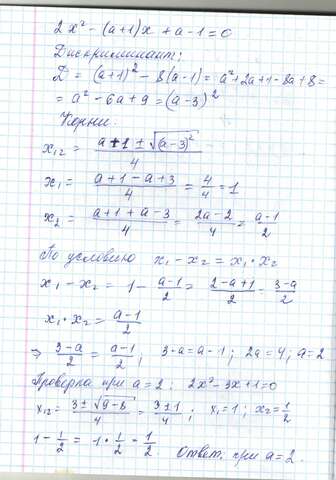 2x² - (a+1)x + a - 1 = 0
Дискриминант:
D = (a+1)² - 8(a-1) = a² + 2a + 1 - 8a + 8 =
= a² - 6a + 9 = (a-3)²
Корни:
x₁₂ = (a + 1 ± √(a-3)²)/4
x₁ = (a+1-a+3)/4 = 4/4 = 1
x₂ = (a+1+a-3)/4 = (2a-2)/4 = (a-1)/2
По условию x₁ - x₂ = x₁ · x₂
x₁ - x₂ = 1 - (a-1)/2 = (2-a+1)/2 = (3-a)/2
x₁ · x₂ = (a-1)/2
⇒ (3-a)/2 = (a-1)/2; 3-a = a-1; 2a = 4, a = 2
Проверка при a = 2: 2x² - 3x + 1 = 0
x₁₂ = (3 ± √9-8)/4 = (3±1)/4; x₁ = 1; x₂ = 1/2
1 - 1/2 = 1 · 1/2 = 1/2. Ответ: при a = 2.